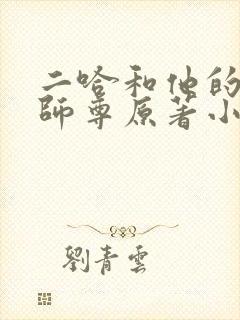 二哈和他的
師尊原著小
劉青雲